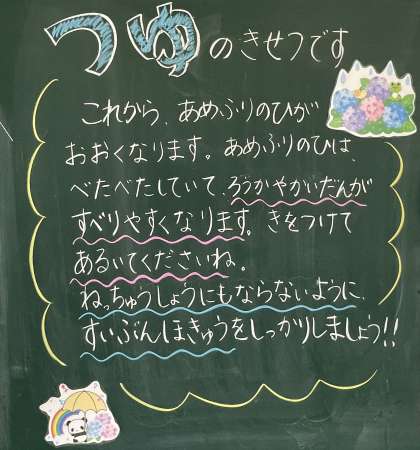 つゆのきせつです
これから、あめふりのひが
おおくなります。あめふりのひは、
べたべたしていて、ろうかやかいだんが
すべりやすくなります。きをつけて
あるいてくださいね。
ねっちゅうしょうにもならないように、
すいぶんほきゅうをしっかりしましょう!!